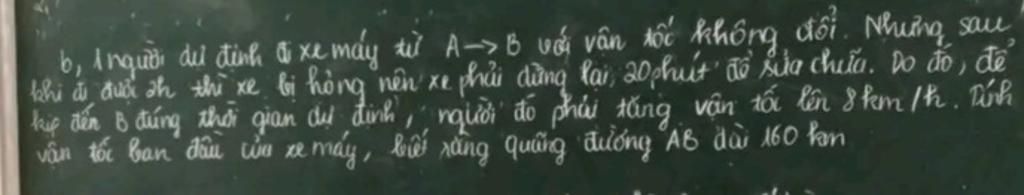 b, 1 người dự định đi xe máy từ A → B với vận tốc không đổi. Nhưng sau
khi đi được 2h thì xe bị hỏng nên xe phải dừng lại 20 phút để sửa chữa. Do đó, để
kịp đến B đúng thời gian dự định, người đó phải tăng vận tốc lên 8km/h. Tính
vận tốc ban đầu của xe máy, biết rằng quãng đường AB dài 160 km